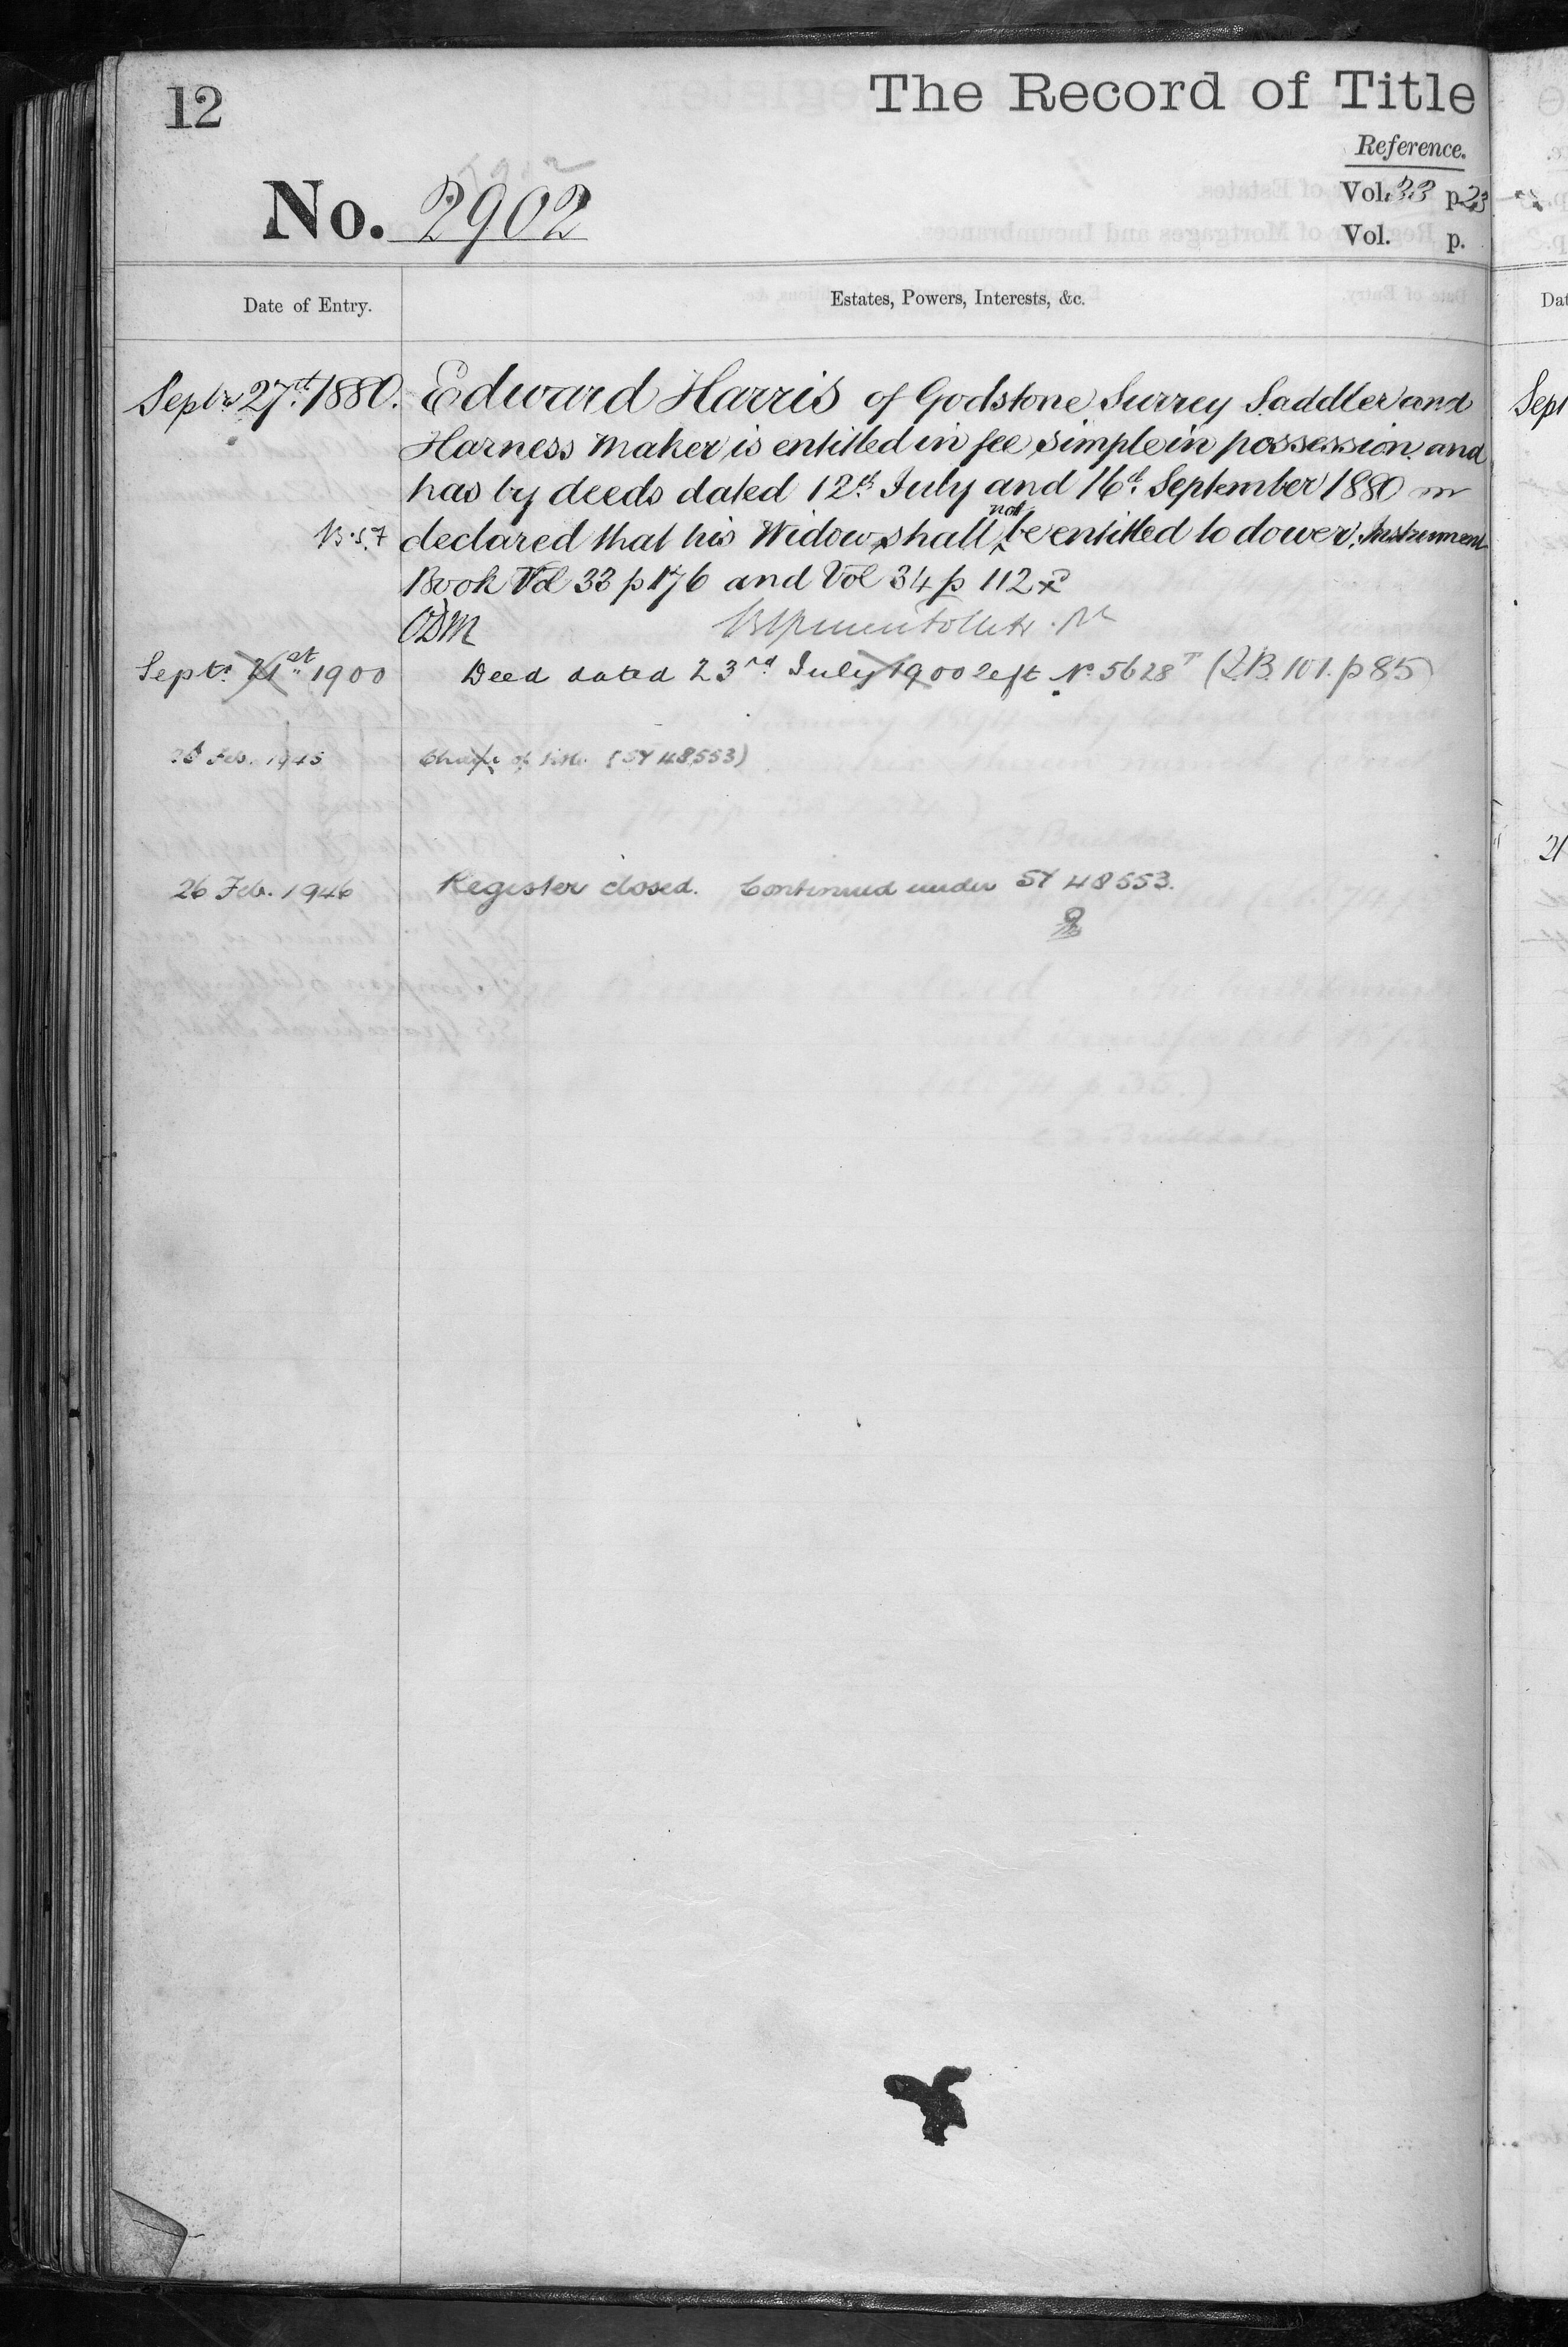 12
The Record of Title
Reference.
No. 2902
Vol. 33 p. 23
Vol. p.
Date of Entry.
Estates, Powers, Interests, &c.
Septr 27th 1880. Edward Harris of Godstone Surrey Saddler and
Harness Maker is entitled in fee simple in possession and
has by deeds dated 12th July and 16th September 1880
declared that his Widow shall not be entitled to dower. Instrument
Book Vol 33 p 176 and Vol 34 p 112
Septr 21st 1900 Deed dated 23rd July 1900 left No 5628T (I.B. 101. p 85)
Feb. 1945 Charge of title (SY 48553)
26 Feb. 1946 Register closed. Continued under SY 48553.